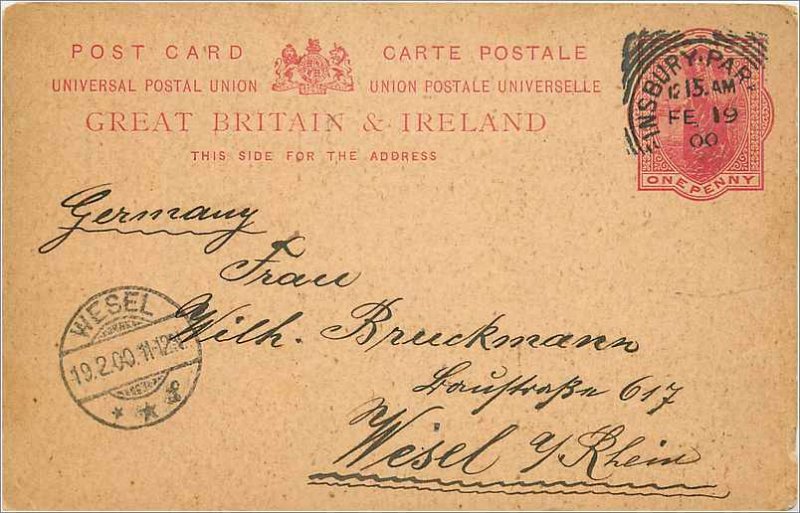 POST CARD CARTE POSTALE
UNIVERSAL POSTAL UNION UNION POSTALE UNIVERSELLE
GREAT BRITAIN & IRELAND
THIS SIDE FOR THE ADDRESS
INSBURY·PAR
12 15. AM
FE 19
00
ONE PENNY
Germany
Frau
Wilh. Bruckmann
Baustraße 617
Wesel a/Rhein
WESEL
19.2.00.11-12